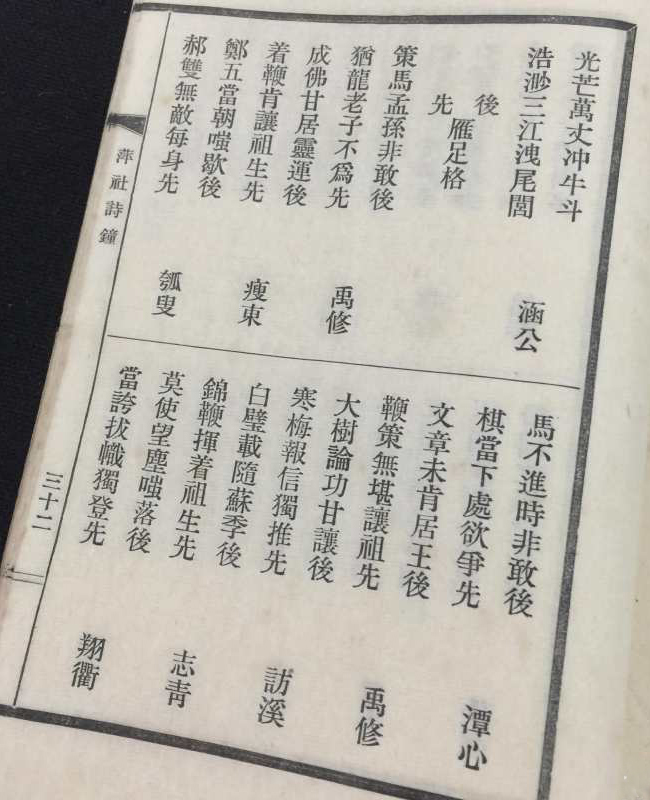 光芒萬丈冲牛斗
浩渺三江洩尾閭
涵公
後
先
雁足格
策馬孟孫非敢後
猶龍老子不爲先
禹修
成佛甘居靈運後
着鞭肯讓祖生先
瘦東
鄭五當朝嗤歇後
郝雙無敵每身先
瓠叟
馬不進時非敢後
棋當下處欲爭先
潭心
文章未肯居王後
鞭策無堪讓祖先
禹修
大樹論功甘讓後
寒梅報信獨推先
訪溪
白璧載隨蘇季後
錦鞭揮着祖生先
志青
莫使望塵嗤落後
當誇拔幟獨登先
翔衢
萍社詩鐘
三十二